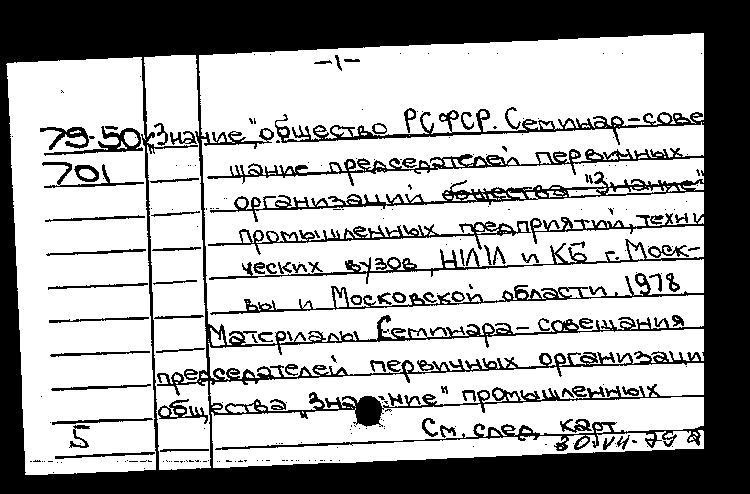 -1-
79-50к "Знание", общество РСФСР. Семинар-сове
701 щание председателей первичных
организаций общества "Знание"
промышленных предприятий, техни
ческих вузов, НИИ и КБ г. Моск-
вы и Московской области. 1978.
Материалы Семинара-совещания
председателей первичных организаци
общества "Знание" промышленных
5 См. след. карт.